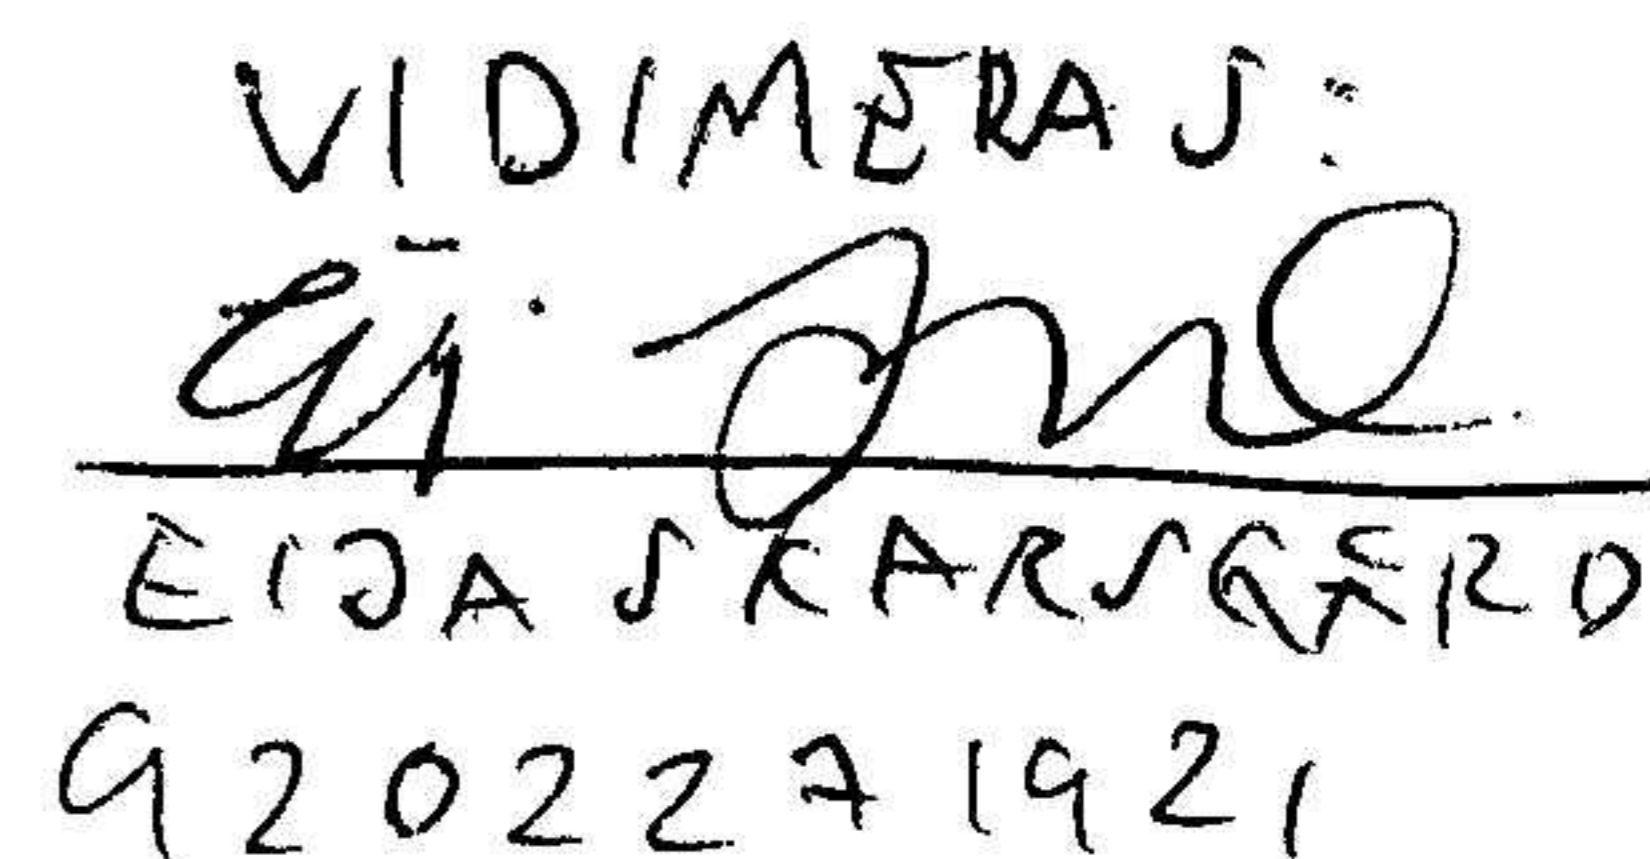 VIDIMERAS:
EIJA SKARSGÄRD
9202271921